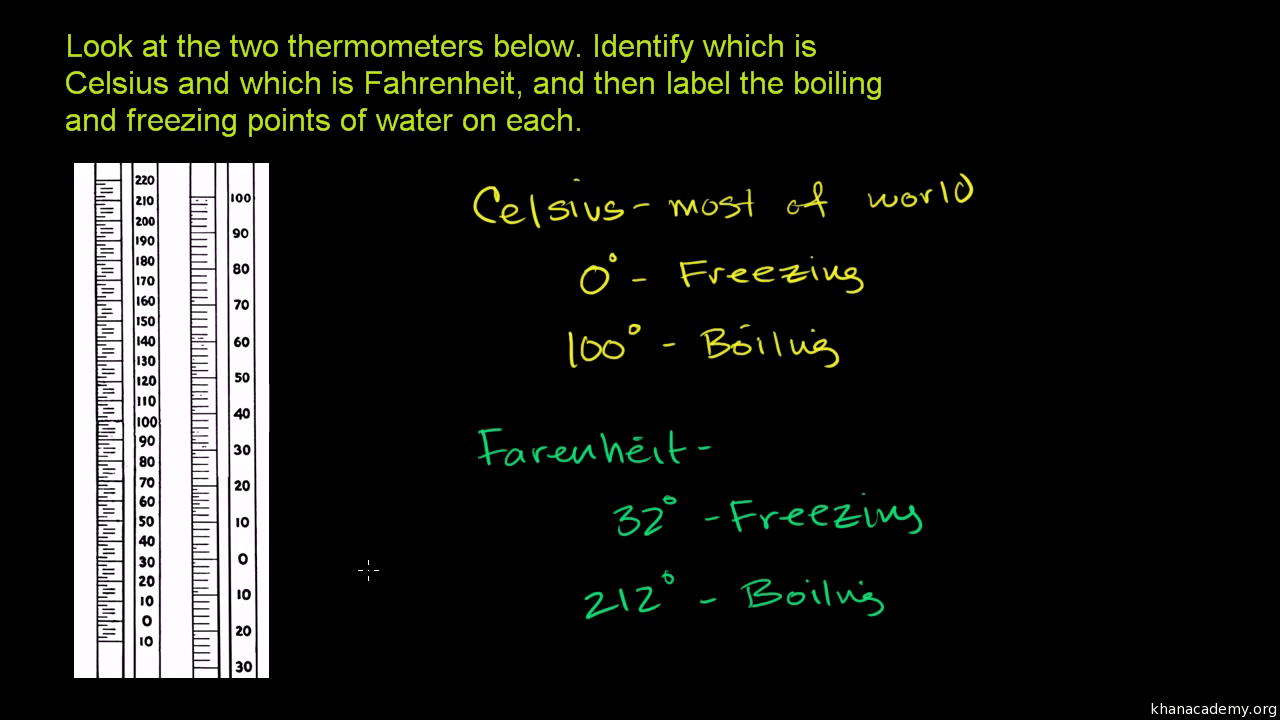 Look at the two thermometers below. Identify which is
Celsius and which is Fahrenheit, and then label the boiling
and freezing points of water on each.
220
210
200
190
180
170
160
150
140
130
120
110
100
90
80
70
60
50
40
30
20
10
0
10
100
90
80
70
60
50
40
30
20
10
0
10
20
30
Celsius - most of world
0° - Freezing
100° - Boiling
Farenheit -
32° - Freezing
212° - Boiling
khanacademy.org